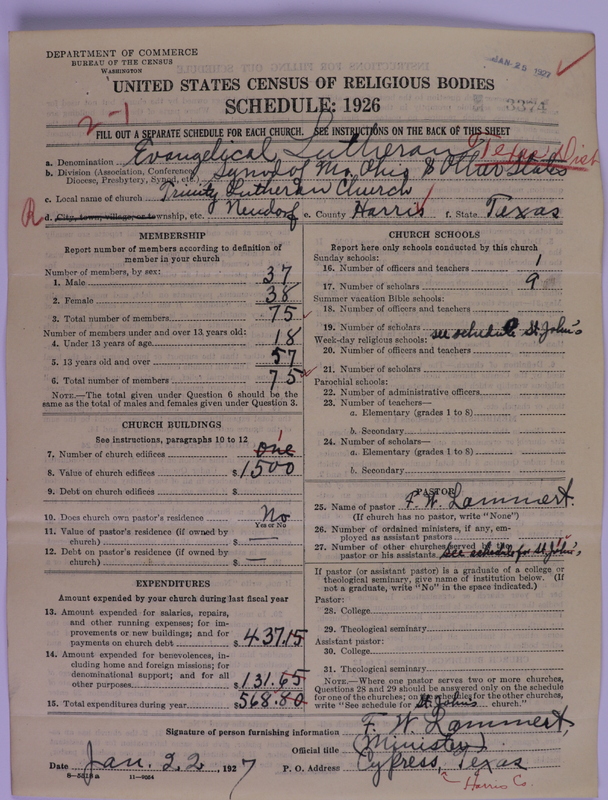 DEPARTMENT OF COMMERCE
BUREAU OF THE CENSUS
WASHINGTON
JAN 25 1927
UNITED STATES CENSUS OF RELIGIOUS BODIES
SCHEDULE: 1926
3374
2-1
FILL OUT A SEPARATE SCHEDULE FOR EACH CHURCH. SEE INSTRUCTIONS ON THE BACK OF THIS SHEET
a. Denomination Evangelical Lutheran Texas Dist
b. Division (Association, Conference, Diocese, Presbytery, Synod, etc.) Synod of Mo. Ohio & Other States
c. Local name of church Trinity Lutheran Church
R d. City, town, village, or township, etc. Neudorf e. County Harris f. State Texas
MEMBERSHIP
Report number of members according to definition of
member in your church
Number of members, by sex:
1. Male 37
2. Female 38
3. Total number of members 75
Number of members under and over 13 years old:
4. Under 13 years of age 18
5. 13 years old and over 57
6. Total number of members 75
NOTE.—The total given under Question 6 should be the
same as the total of males and females given under Question 3.
CHURCH BUILDINGS
See instructions, paragraphs 10 to 12
7. Number of church edifices one 1
8. Value of church edifices $1500
9. Debt on church edifices $
10. Does church own pastor's residence No
Yes or No
11. Value of pastor's residence (if owned by
church) $ —
12. Debt on pastor's residence (if owned by
church) $ —
EXPENDITURES
Amount expended by your church during last fiscal year
13. Amount expended for salaries, repairs,
and other running expenses; for im-
provements or new buildings; and for
payments on church debt $437.15
14. Amount expended for benevolences, in-
cluding home and foreign missions; for
denominational support; and for all
other purposes $131.65
15. Total expenditures during year $568.80
CHURCH SCHOOLS
Report here only schools conducted by this church
Sunday schools:
16. Number of officers and teachers 1
17. Number of scholars 9
Summer vacation Bible schools:
18. Number of officers and teachers
19. Number of scholars see schedule St. John's
Week-day religious schools:
20. Number of officers and teachers
21. Number of scholars
Parochial schools:
22. Number of administrative officers
23. Number of teachers—
a. Elementary (grades 1 to 8)
b. Secondary
24. Number of scholars—
a. Elementary (grades 1 to 8)
b. Secondary
PASTOR
25. Name of pastor F. W. Lammert.
(If church has no pastor, write "None")
26. Number of ordained ministers, if any, em-
ployed as assistant pastors
27. Number of other churches served by the
pastor or his assistants see schedule for St. John's
If pastor (or assistant pastor) is a graduate of a college or
theological seminary, give name of institution below. (If
not a graduate, write "No" in the space indicated.)
Pastor:
28. College
29. Theological seminary
Assistant pastor:
30. College
31. Theological seminary
NOTE.—Where one pastor serves two or more churches,
Questions 28 and 29 should be answered only on the schedule
for one of the churches; on the schedules for the other churches,
write "See schedule for St. John's church."
Signature of person furnishing information F. W. Lammert,
Official title (Minister)
Date Jan. 22, 1927 P. O. Address Cypress, Texas
Harris Co.
8—5518a 11—9064